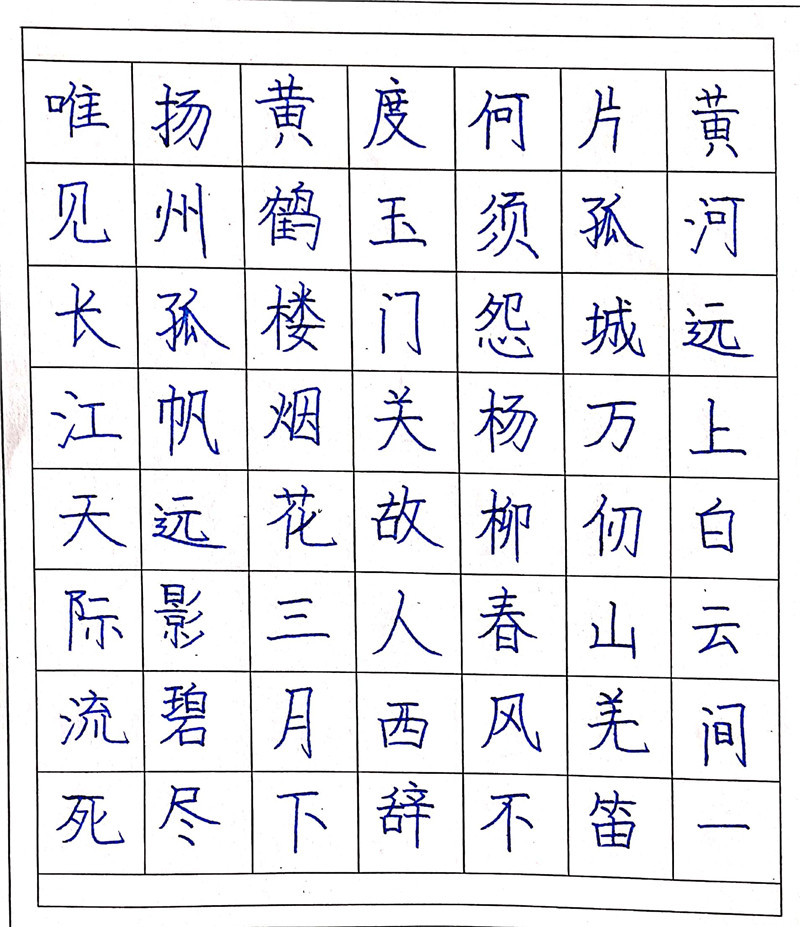 黄河远上白云间一
片孤城万仞山羌笛
何须怨杨柳春风不
度玉门关故人西辞
黄鹤楼烟花三月下
扬州孤帆远影碧尽
唯见长江天际流死